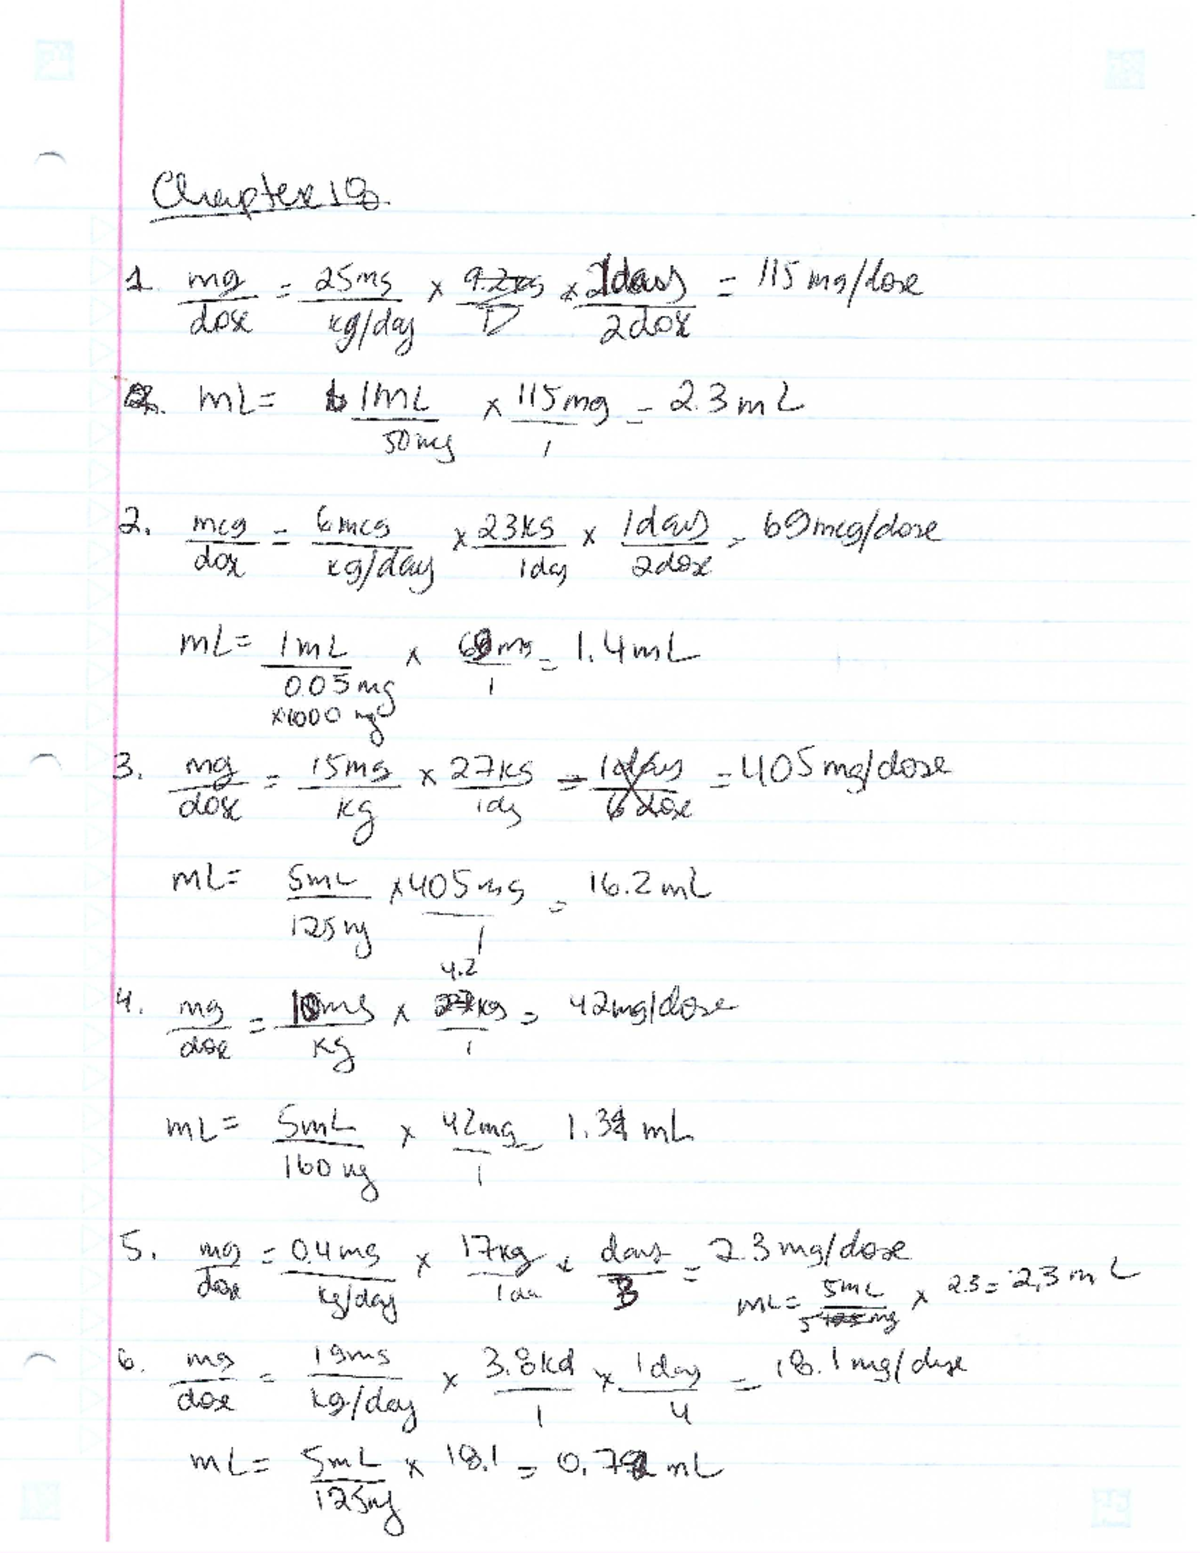 Chapter 18.
1. mg/dose = 25mg/kg/day × 9.2kg/1 × 1day/2dose = 115 mg/dose
mL = 1mL/50mg × 115mg/1 = 2.3mL
2. mcg/dose = 6mcg/kg/day × 23kg/1day × 1day/2dose = 69mcg/dose
mL = 1mL/0.05mg ×1000 mg × 69mg/1 = 1.4mL
3. mg/dose = 15mg/kg × 27kg/1dg = 1day/6dose = 405mg/dose
mL = 5mL/125mg × 405mg/1 = 16.2mL
4. mg/dose = 10mg/kg × 4.2 kg/1 = 42mg/dose
mL = 5mL/160mg × 42mg/1 = 1.3 mL
5. mg/dose = 0.4mg/kg/day × 17kg/1da × day/3 = 2.3mg/dose
mL = 5mL/5mg × 2.3 = 2.3mL
6. mg/dose = 19mg/kg/day × 3.8kd/1 × 1day/4 = 18.1mg/dose
mL = 5mL/125mg × 18.1 = 0.72 mL